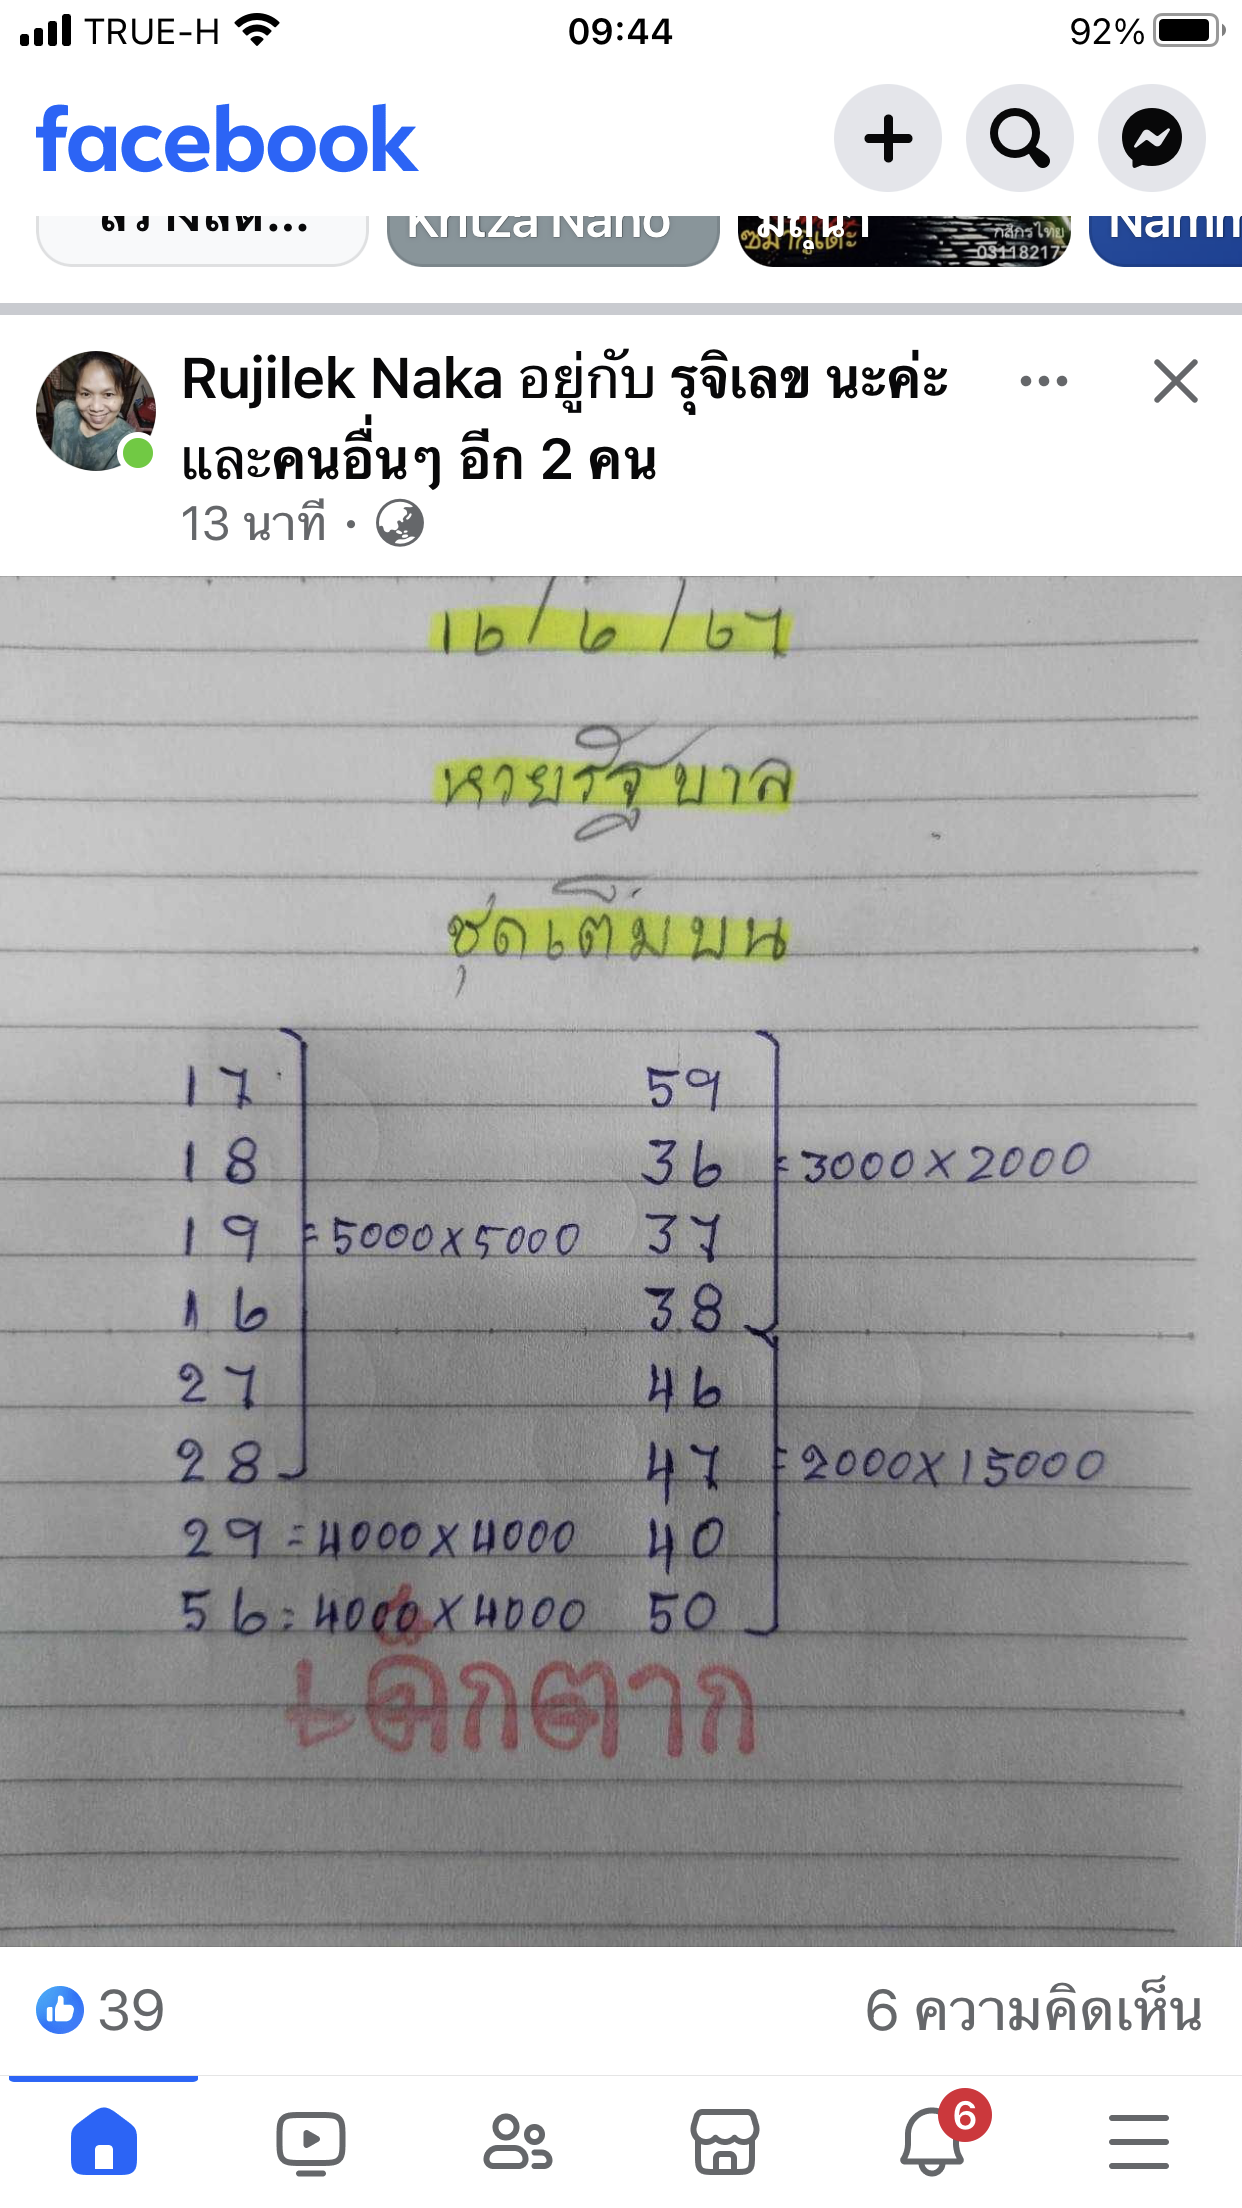 TRUE-H 09:44 92%
facebook
Kritza Nano
กสิกรไทย
Rujilek Naka อยู่กับ รุจิเลข นะค่ะ
และคนอื่นๆ อีก 2 คน
13 นาที ·
16/6/67
หวยรัฐบาล
ชุดเต็มบน
17 59
18 36 = 3000 x 2000
19 = 5000 x 5000 37
16 38
27 46
28 47 = 2000 x 15000
29 = 4000 x 4000 40
56 = 4000 x 4000 50
39 6 ความคิดเห็น
6